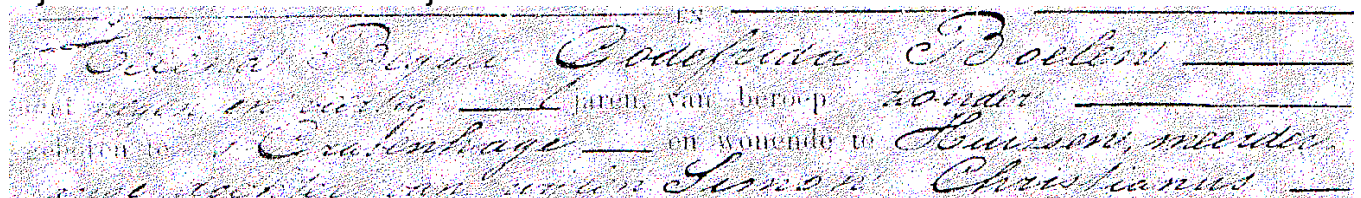 EN
Godefrida Boelen
negen en veertig jaren, van beroep zonder
geboren te 's Gravenhage en wonende te Huissen, meerder
dochter van wijlen Simon Christianus